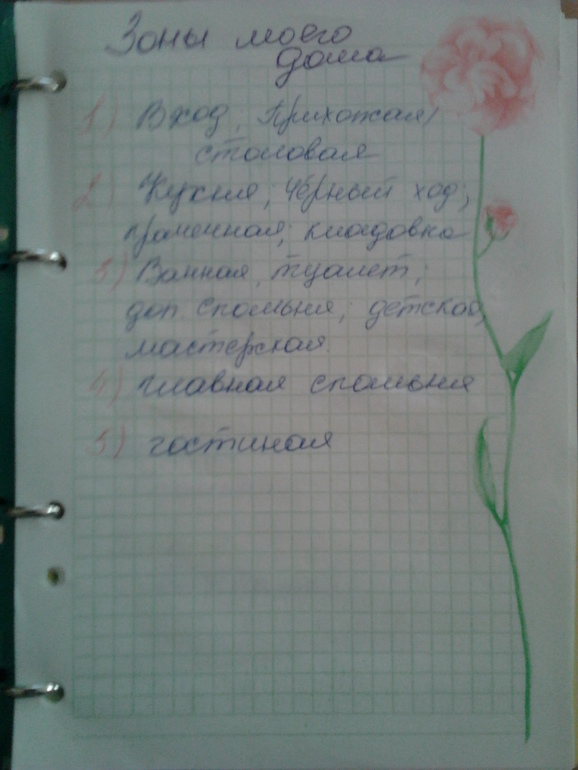 Зоны моего
дома
1) Вход, Прихожая,
столовая
2) Кухня, чёрный ход,
прачечная, кладовка
3) Ванная, туалет,
доп. спальня, детская,
мастерская.
4) главная спальня
5) гостиная